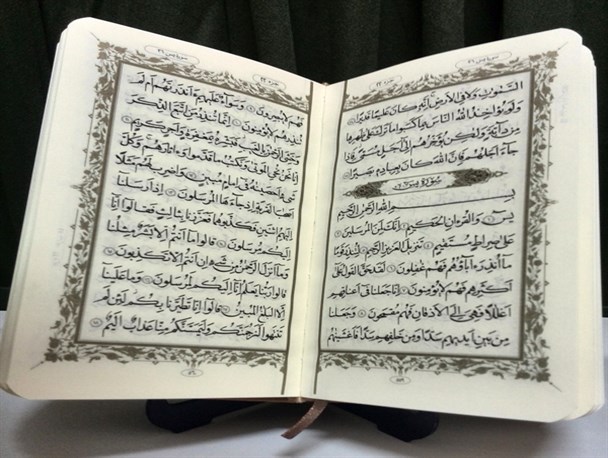 جزء ٢٢
السَّمٰوَاتِ وَلَا فِي الْاَرْضِ اِنَّهُ كَانَ عَلِيمًا قَدِيرًا
وَلَوْ يُؤَاخِذُ اللّٰهُ النَّاسَ بِمَا كَسَبُوا مَا تَرَكَ عَلٰى ظَهْرِهَا
مِنْ دَابَّةٍ وَلٰكِنْ يُؤَخِّرُهُمْ اِلٰى اَجَلٍ مُسَمًّى فَاِذَا
جَاءَ اَجَلُهُمْ فَاِنَّ اللّٰهَ كَانَ بِعِبَادِهِ بَصِيرًا
سورة يس
بِسْمِ اللّٰهِ الرَّحْمٰنِ الرَّحِيمِ
يٰسٓ وَالْقُرْاٰنِ الْحَكِيمِ اِنَّكَ لَمِنَ الْمُرْسَلِينَ
عَلٰى صِرَاطٍ مُسْتَقِيمٍ تَنْزِيلَ الْعَزِيزِ الرَّحِيمِ لِتُنْذِرَ قَوْمًا
مَا اُنْذِرَ اٰبَاؤُهُمْ فَهُمْ غَافِلُونَ لَقَدْ حَقَّ الْقَوْلُ عَلٰى
اَكْثَرِهِمْ فَهُمْ لَا يُؤْمِنُونَ اِنَّا جَعَلْنَا فِي اَعْنَاقِهِمْ
اَغْلَالًا فَهِيَ اِلَى الْاَذْقَانِ فَهُمْ مُقْمَحُونَ وَجَعَلْنَا
مِنْ بَيْنِ اَيْدِيهِمْ سَدًّا وَمِنْ خَلْفِهِمْ سَدًّا فَاَغْشَيْنَاهُمْ
جزء ٢٢
فَهُمْ لَا يُبْصِرُونَ وَسَوَاءٌ عَلَيْهِمْ ءَاَنْذَرْتَهُمْ اَمْ لَمْ
تُنْذِرْهُمْ لَا يُؤْمِنُونَ اِنَّمَا تُنْذِرُ مَنِ اتَّبَعَ الذِّكْرَ
وَخَشِيَ الرَّحْمٰنَ بِالْغَيْبِ فَبَشِّرْهُ بِمَغْفِرَةٍ وَاَجْرٍ كَرِيمٍ
اِنَّا نَحْنُ نُحْيِي الْمَوْتٰى وَنَكْتُبُ مَا قَدَّمُوا وَاٰثَارَهُمْ وَكُلَّ
شَيْءٍ اَحْصَيْنَاهُ فِي اِمَامٍ مُبِينٍ وَاضْرِبْ لَهُمْ مَثَلًا
اَصْحَابَ الْقَرْيَةِ اِذْ جَاءَهَا الْمُرْسَلُونَ اِذْ اَرْسَلْنَا
اِلَيْهِمُ اثْنَيْنِ فَكَذَّبُوهُمَا فَعَزَّزْنَا بِثَالِثٍ فَقَالُوا اِنَّا
اِلَيْكُمْ مُرْسَلُونَ قَالُوا مَا اَنْتُمْ اِلَّا بَشَرٌ مِثْلُنَا
وَمَا اَنْزَلَ الرَّحْمٰنُ مِنْ شَيْءٍ اِنْ اَنْتُمْ اِلَّا تَكْذِبُونَ
قَالُوا رَبُّنَا يَعْلَمُ اِنَّا اِلَيْكُمْ لَمُرْسَلُونَ وَمَا عَلَيْنَا
اِلَّا الْبَلَاغُ الْمُبِينُ قَالُوا اِنَّا تَطَيَّرْنَا بِكُمْ لَئِنْ لَمْ
تَنْتَهُوا لَنَرْجُمَنَّكُمْ وَلَيَمَسَّنَّكُمْ مِنَّا عَذَابٌ اَلِيمٌ